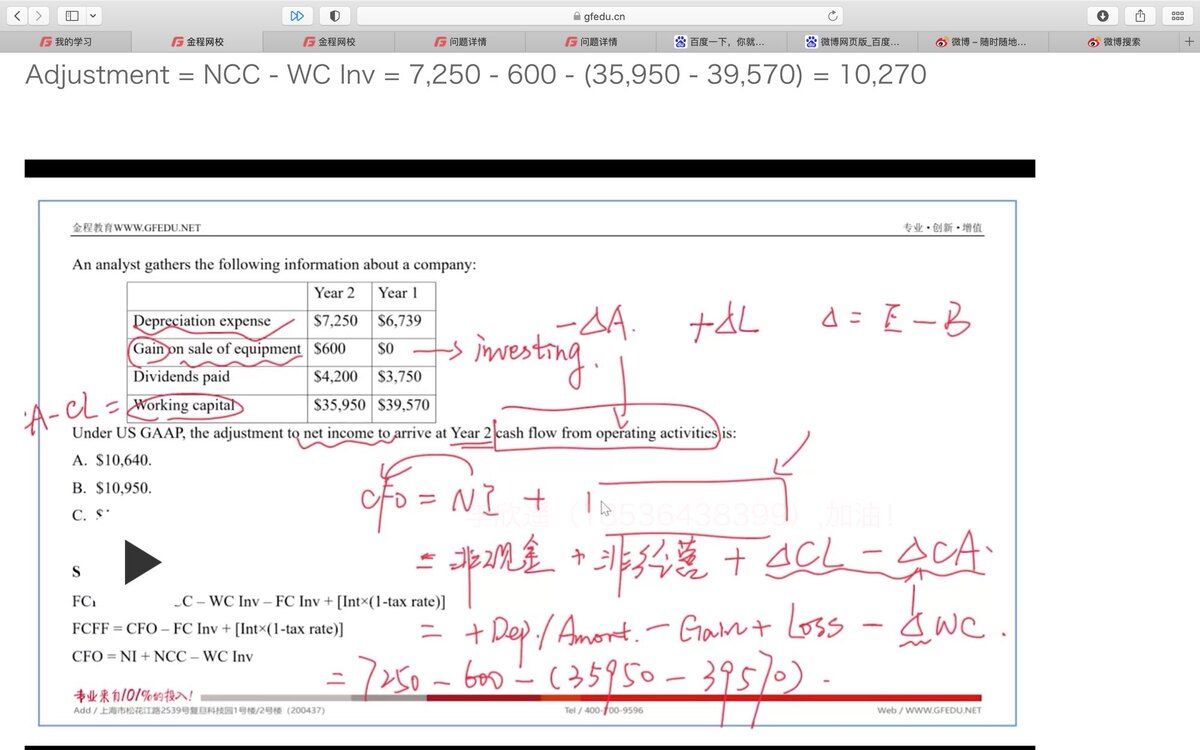 gfedu.cn
我的学习
金程网校
金程网校
问题详情
问题详情
百度一下，你就...
微博网页版_百度...
微博 – 随时随地...
微博搜索
Adjustment = NCC - WC Inv = 7,250 - 600 - (35,950 - 39,570) = 10,270
金程教育WWW.GFEDU.NET
专业•创新•增值
An analyst gathers the following information about a company:
Year 2 Year 1
Depreciation expense $7,250 $6,739
Gain on sale of equipment $600 $0
→ investing.
-ΔA. +ΔL Δ = E - B
Dividends paid $4,200 $3,750
A-CL =
Working capital $35,950 $39,570
Under US GAAP, the adjustment to net income to arrive at Year 2 cash flow from operating activities is:
A. $10,640.
B. $10,950.
C. $
CFO = NI +
加油！
= 非现金 + 非经营 + ΔCL - ΔCA.
S
C – WC Inv – FC Inv + [Int×(1-tax rate)]
FCFF = CFO – FC Inv + [Int×(1-tax rate)]
= +Dep./Amort. - Gain + Loss - ΔWC.
CFO = NI + NCC – WC Inv
= 7250 - 600 - (35950 - 39570).
专业来自101%的投入!
Add / 上海市松花江路2539号复旦科技园1号楼/2号楼（200437）
Tel / 400-700-9596
Web / WWW.GFEDU.NET